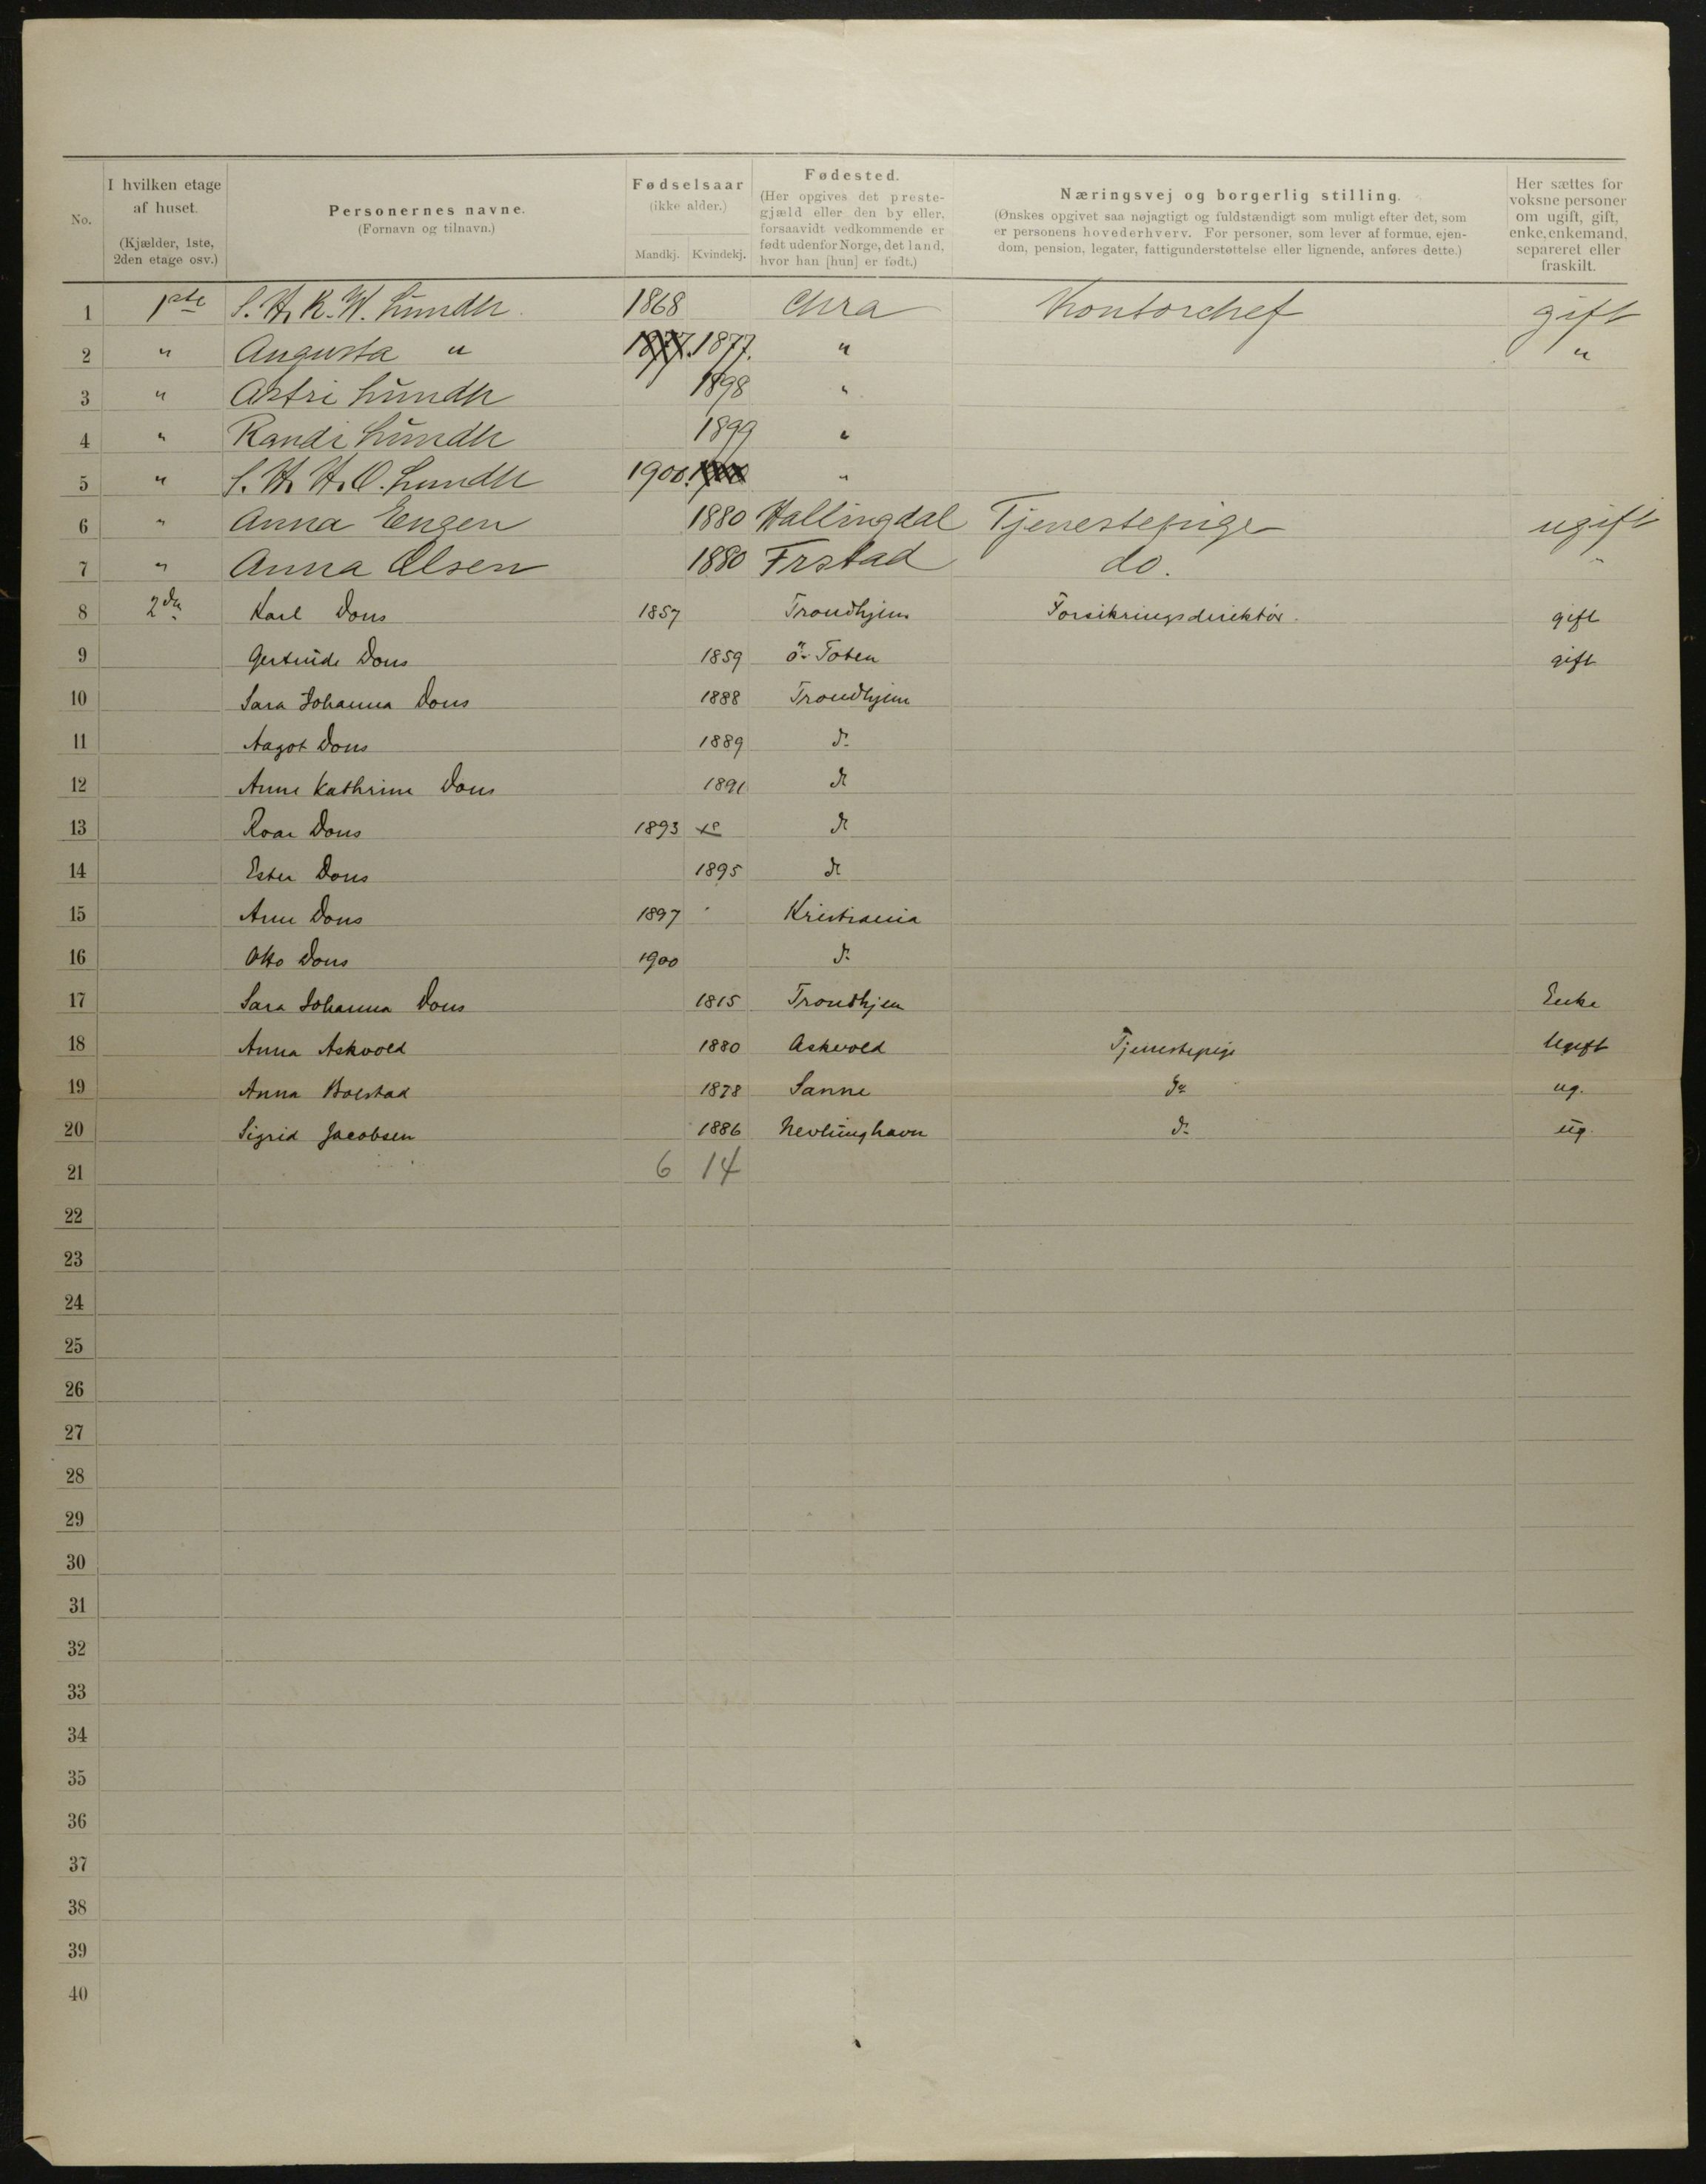 No.
I hvilken etage af huset. (Kjælder, 1ste, 2den etage osv.)
Personernes navne. (Fornavn og tilnavn.)
Fødselsaar (ikke alder.) Mandkj. Kvindekj.
Fødested. (Her opgives det prestegjæld eller den by eller, forsaavidt vedkommende er født udenfor Norge, det land, hvor han [hun] er født.)
Næringsvej og borgerlig stilling. (Ønskes opgivet saa nøjagtigt og fuldstændigt som muligt efter det, som er personens hovederhverv. For personer, som lever af formue, ejendom, pension, legater, fattigunderstøttelse eller lignende, anføres dette.)
Her sættes for voksne personer om ugift, gift, enke, enkemand, separeret eller fraskilt.
1 1ste S. H. K. W. Lundh. 1868 Chra Kontorchef gift
2 " Augusta " 1877. 1877. " "
3 " Astri Lundh 1898 "
4 " Randi Lundh 1899 "
5 " S. H. H. O. Lundh 1900. 1900 "
6 " Anna Engen 1880 Hallingdal Tjenestepige ugift
7 " Anna Olsen 1880 Frstad do. "
8 2den Karl Dons 1857 Trondhjem Forsikringsdirektør. gift
9 Gertrude Dons 1859 Ö. Toten gift
10 Sara Johanna Dons 1888 Trondhjem
11 Aagot Dons 1889 do
12 Anne Kathrine Dons 1891 do
13 Roar Dons 1893 do
14 Ester Dons 1895 do
15 Arne Dons 1897 Kristiania
16 Otto Dons 1900 do
17 Sara Johanna Dons 1815 Trondhjem Enke
18 Anna Askvold 1880 Askvold Tjenestepige Ugift
19 Anna Bolstad 1878 Sanne do ug.
20 Sigrid Jacobsen 1886 Nevlunghavn do ug.
21 6 14
22
23
24
25
26
27
28
29
30
31
32
33
34
35
36
37
38
39
40